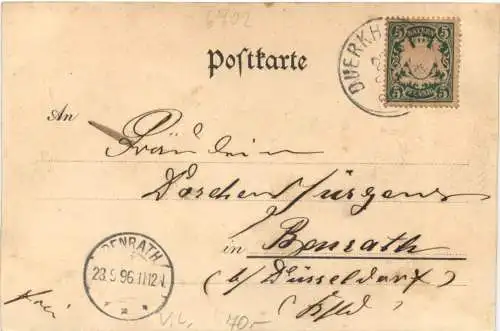 6702
Postkarte
DUERKH
BAYERN
5 5
PFENNIG
An
Fräulein
Dorchen Jürgens
in Benrath
b/ Düsseldorf
BENRATH
23.9.96.11-12V.
frei
V.L. 40.-